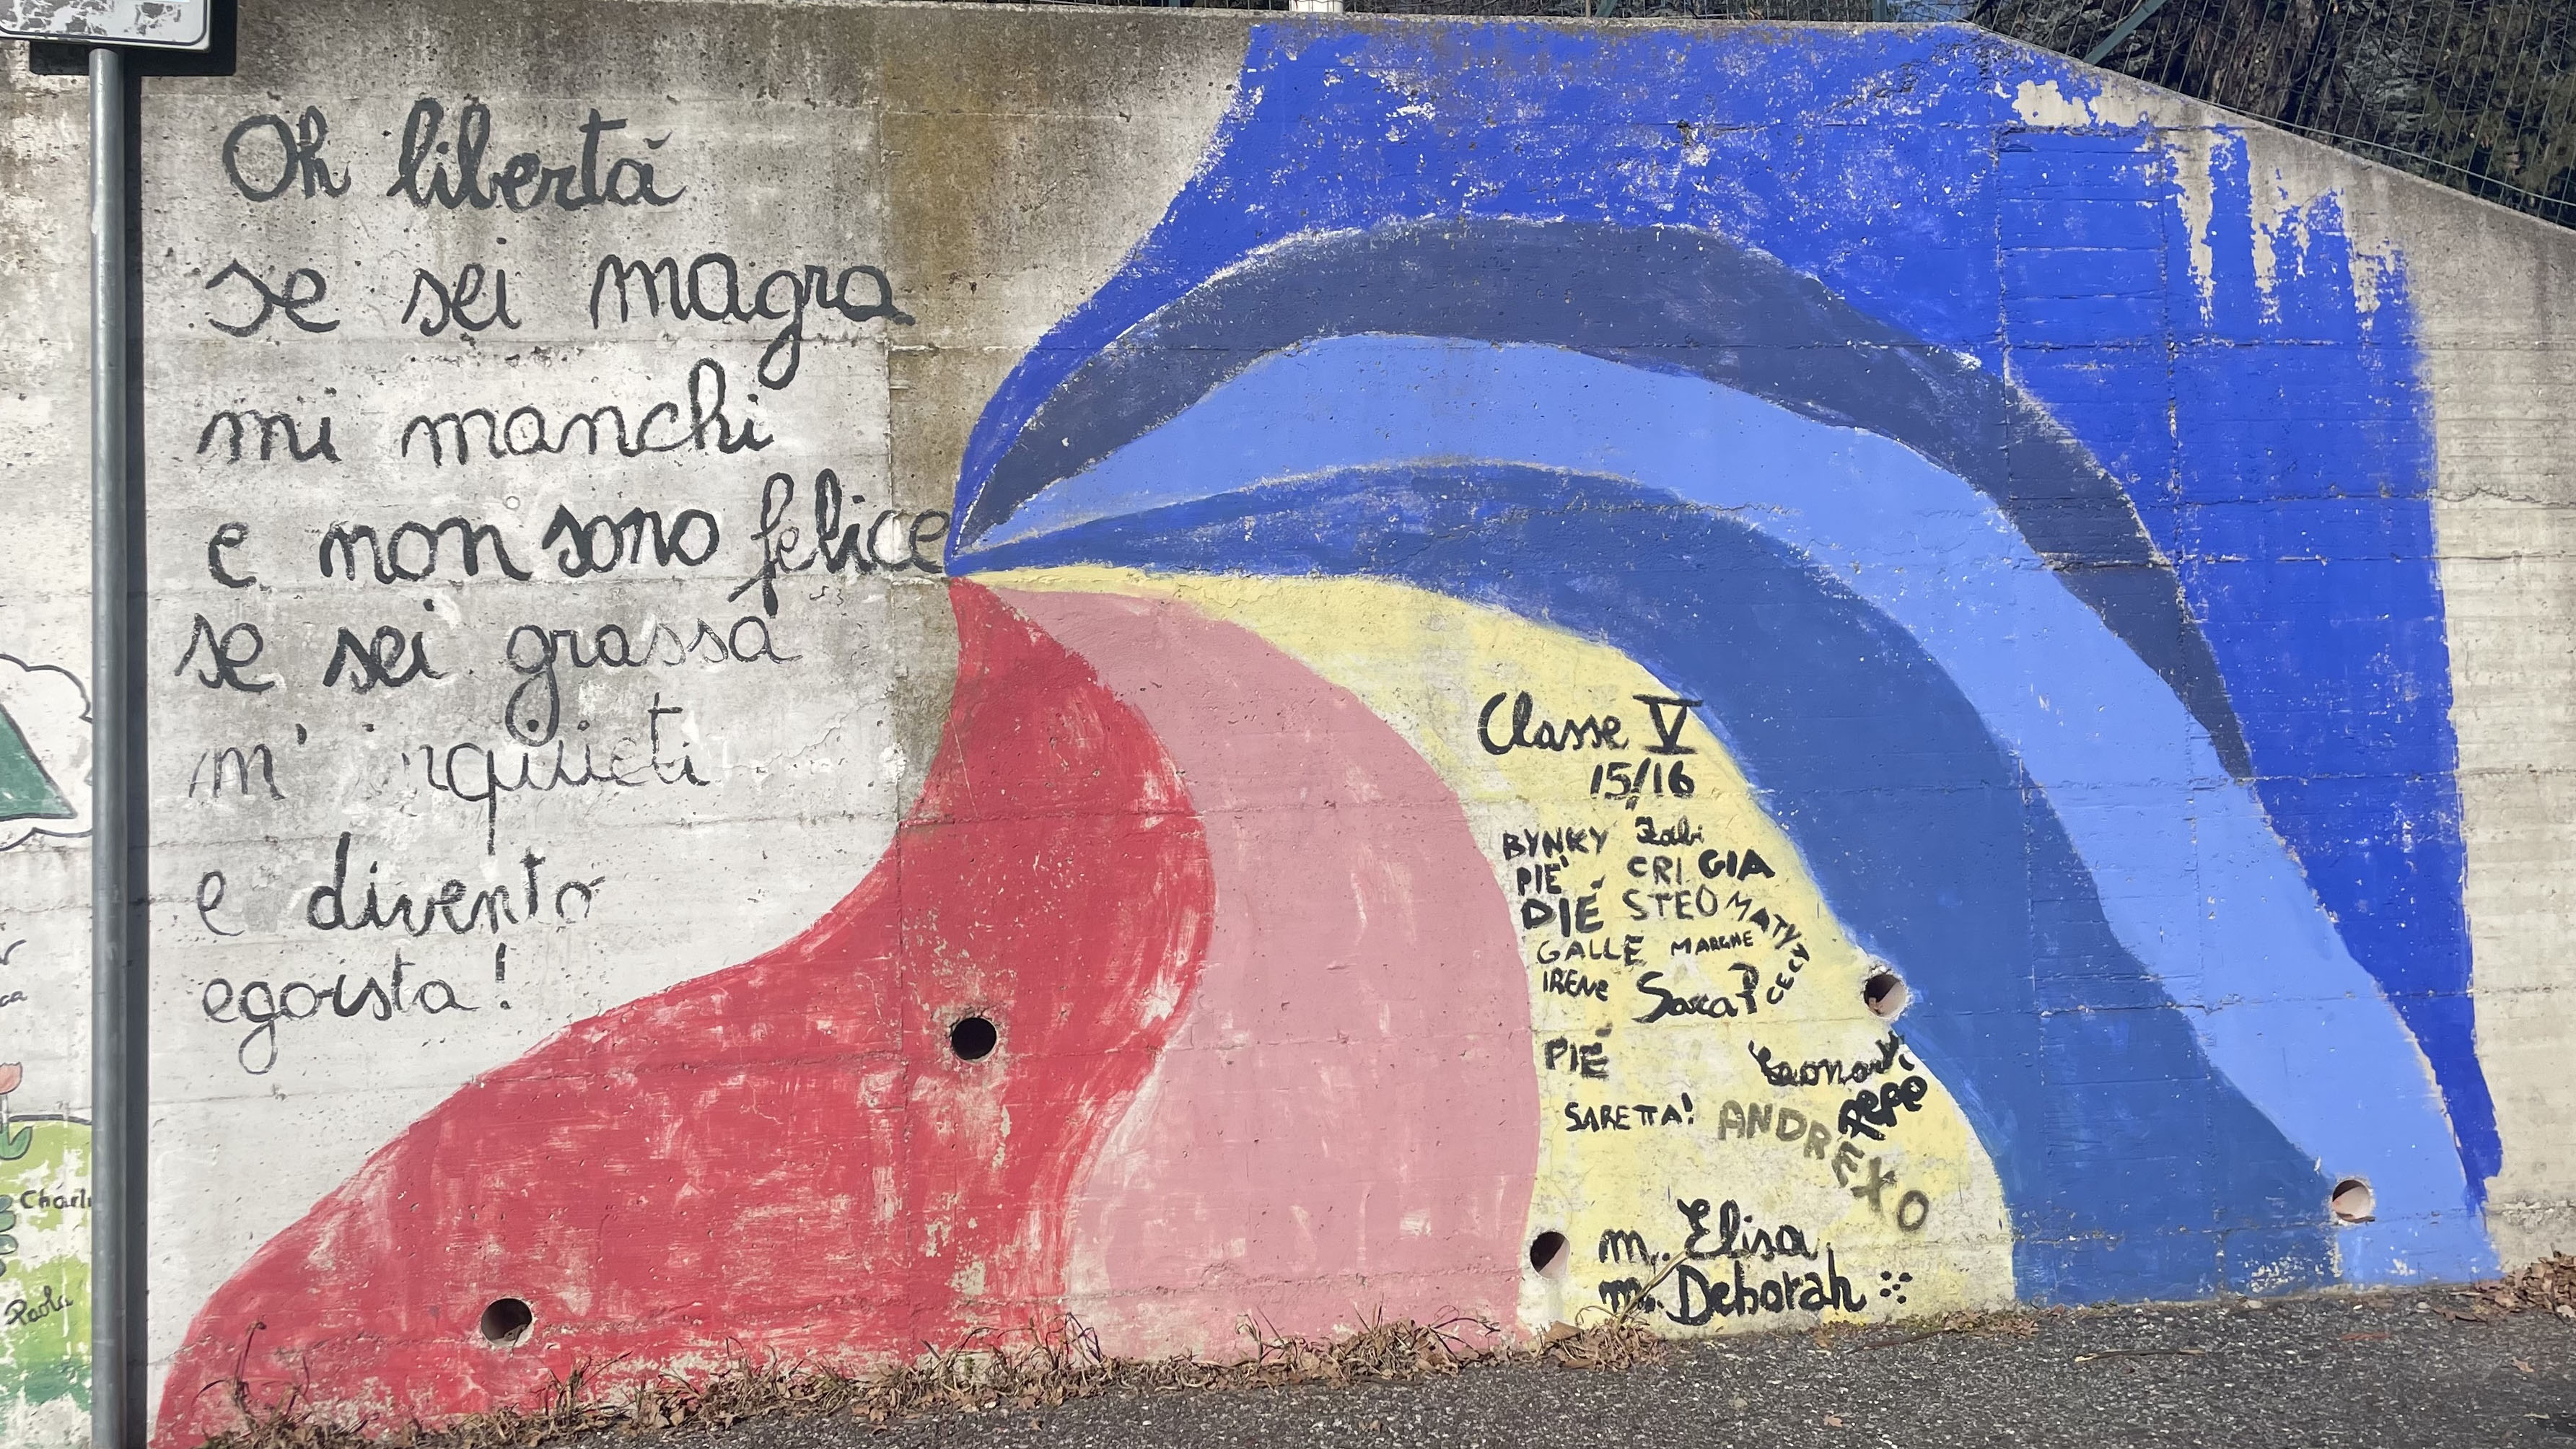 Oh libertà
se sei magra
mi manchi
e non sono felice
se sei grassa
m' inquieti
e divento
egoista!
Classe V
15/16
BYNKY
PIE' CRI GIA
DIÉ STEO MATY
GALLE MARGHE CECY
IRENE Sara P
PIÉ
Leonardi
PEPE
SARETTA! ANDREXO
m. Elisa
m. Deborah
Charli
Paola